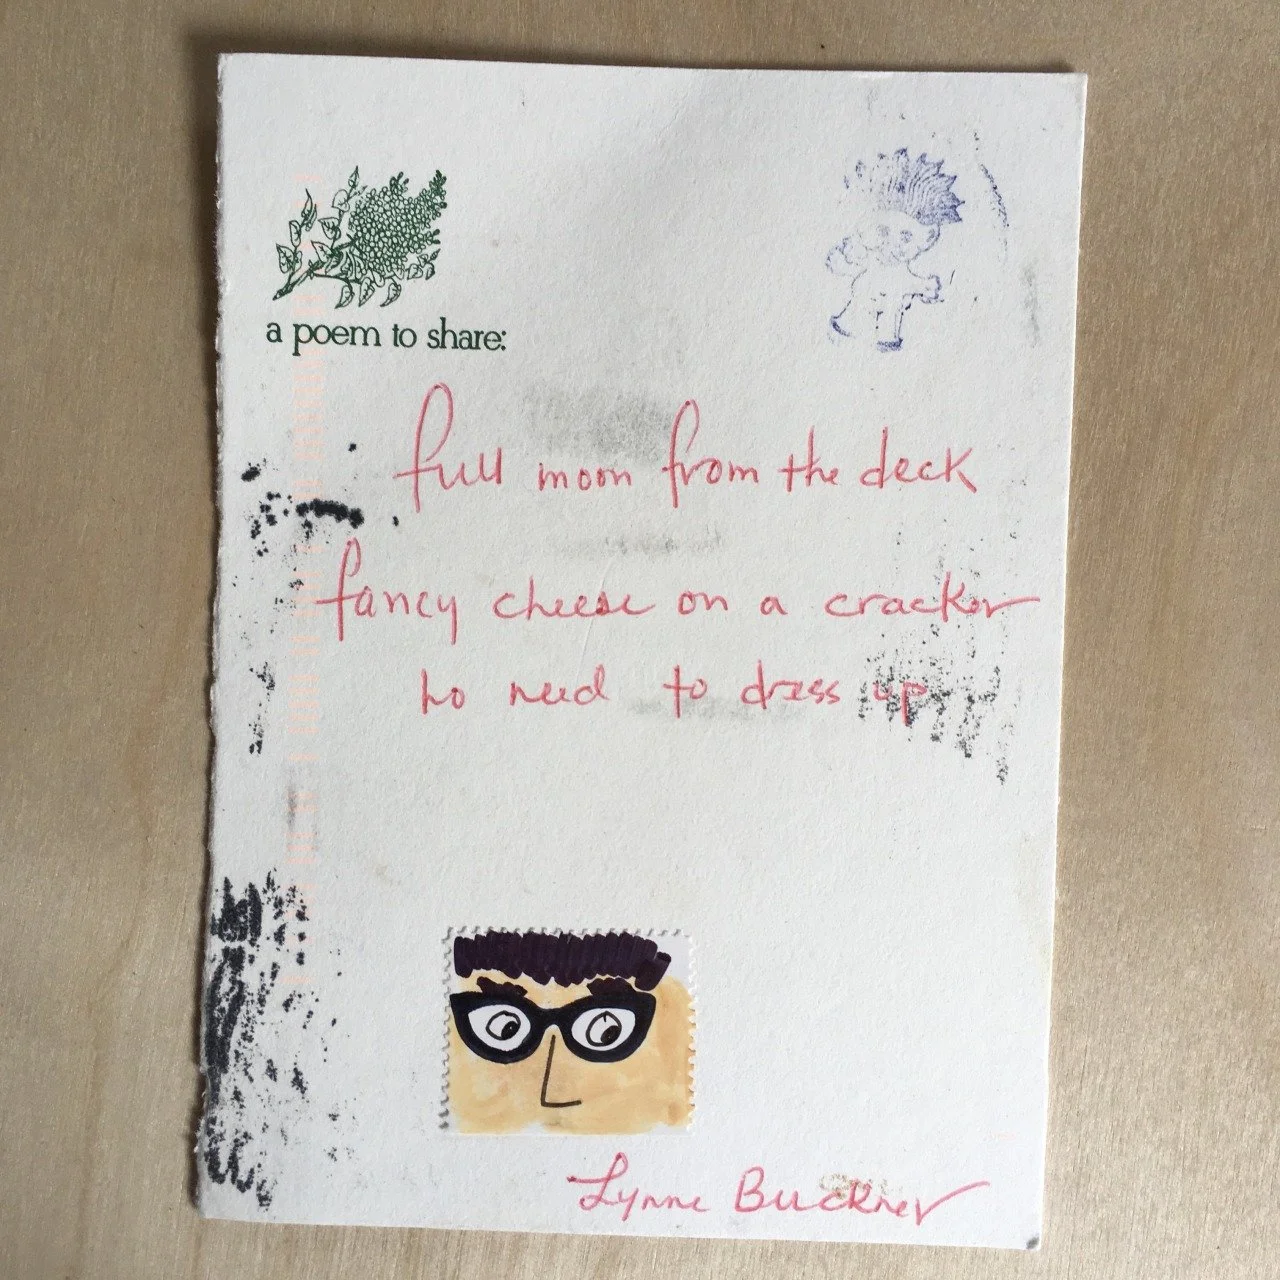 a poem to share:
full moon from the deck
fancy cheese on a cracker
no need to dress up
Lynne Buckner